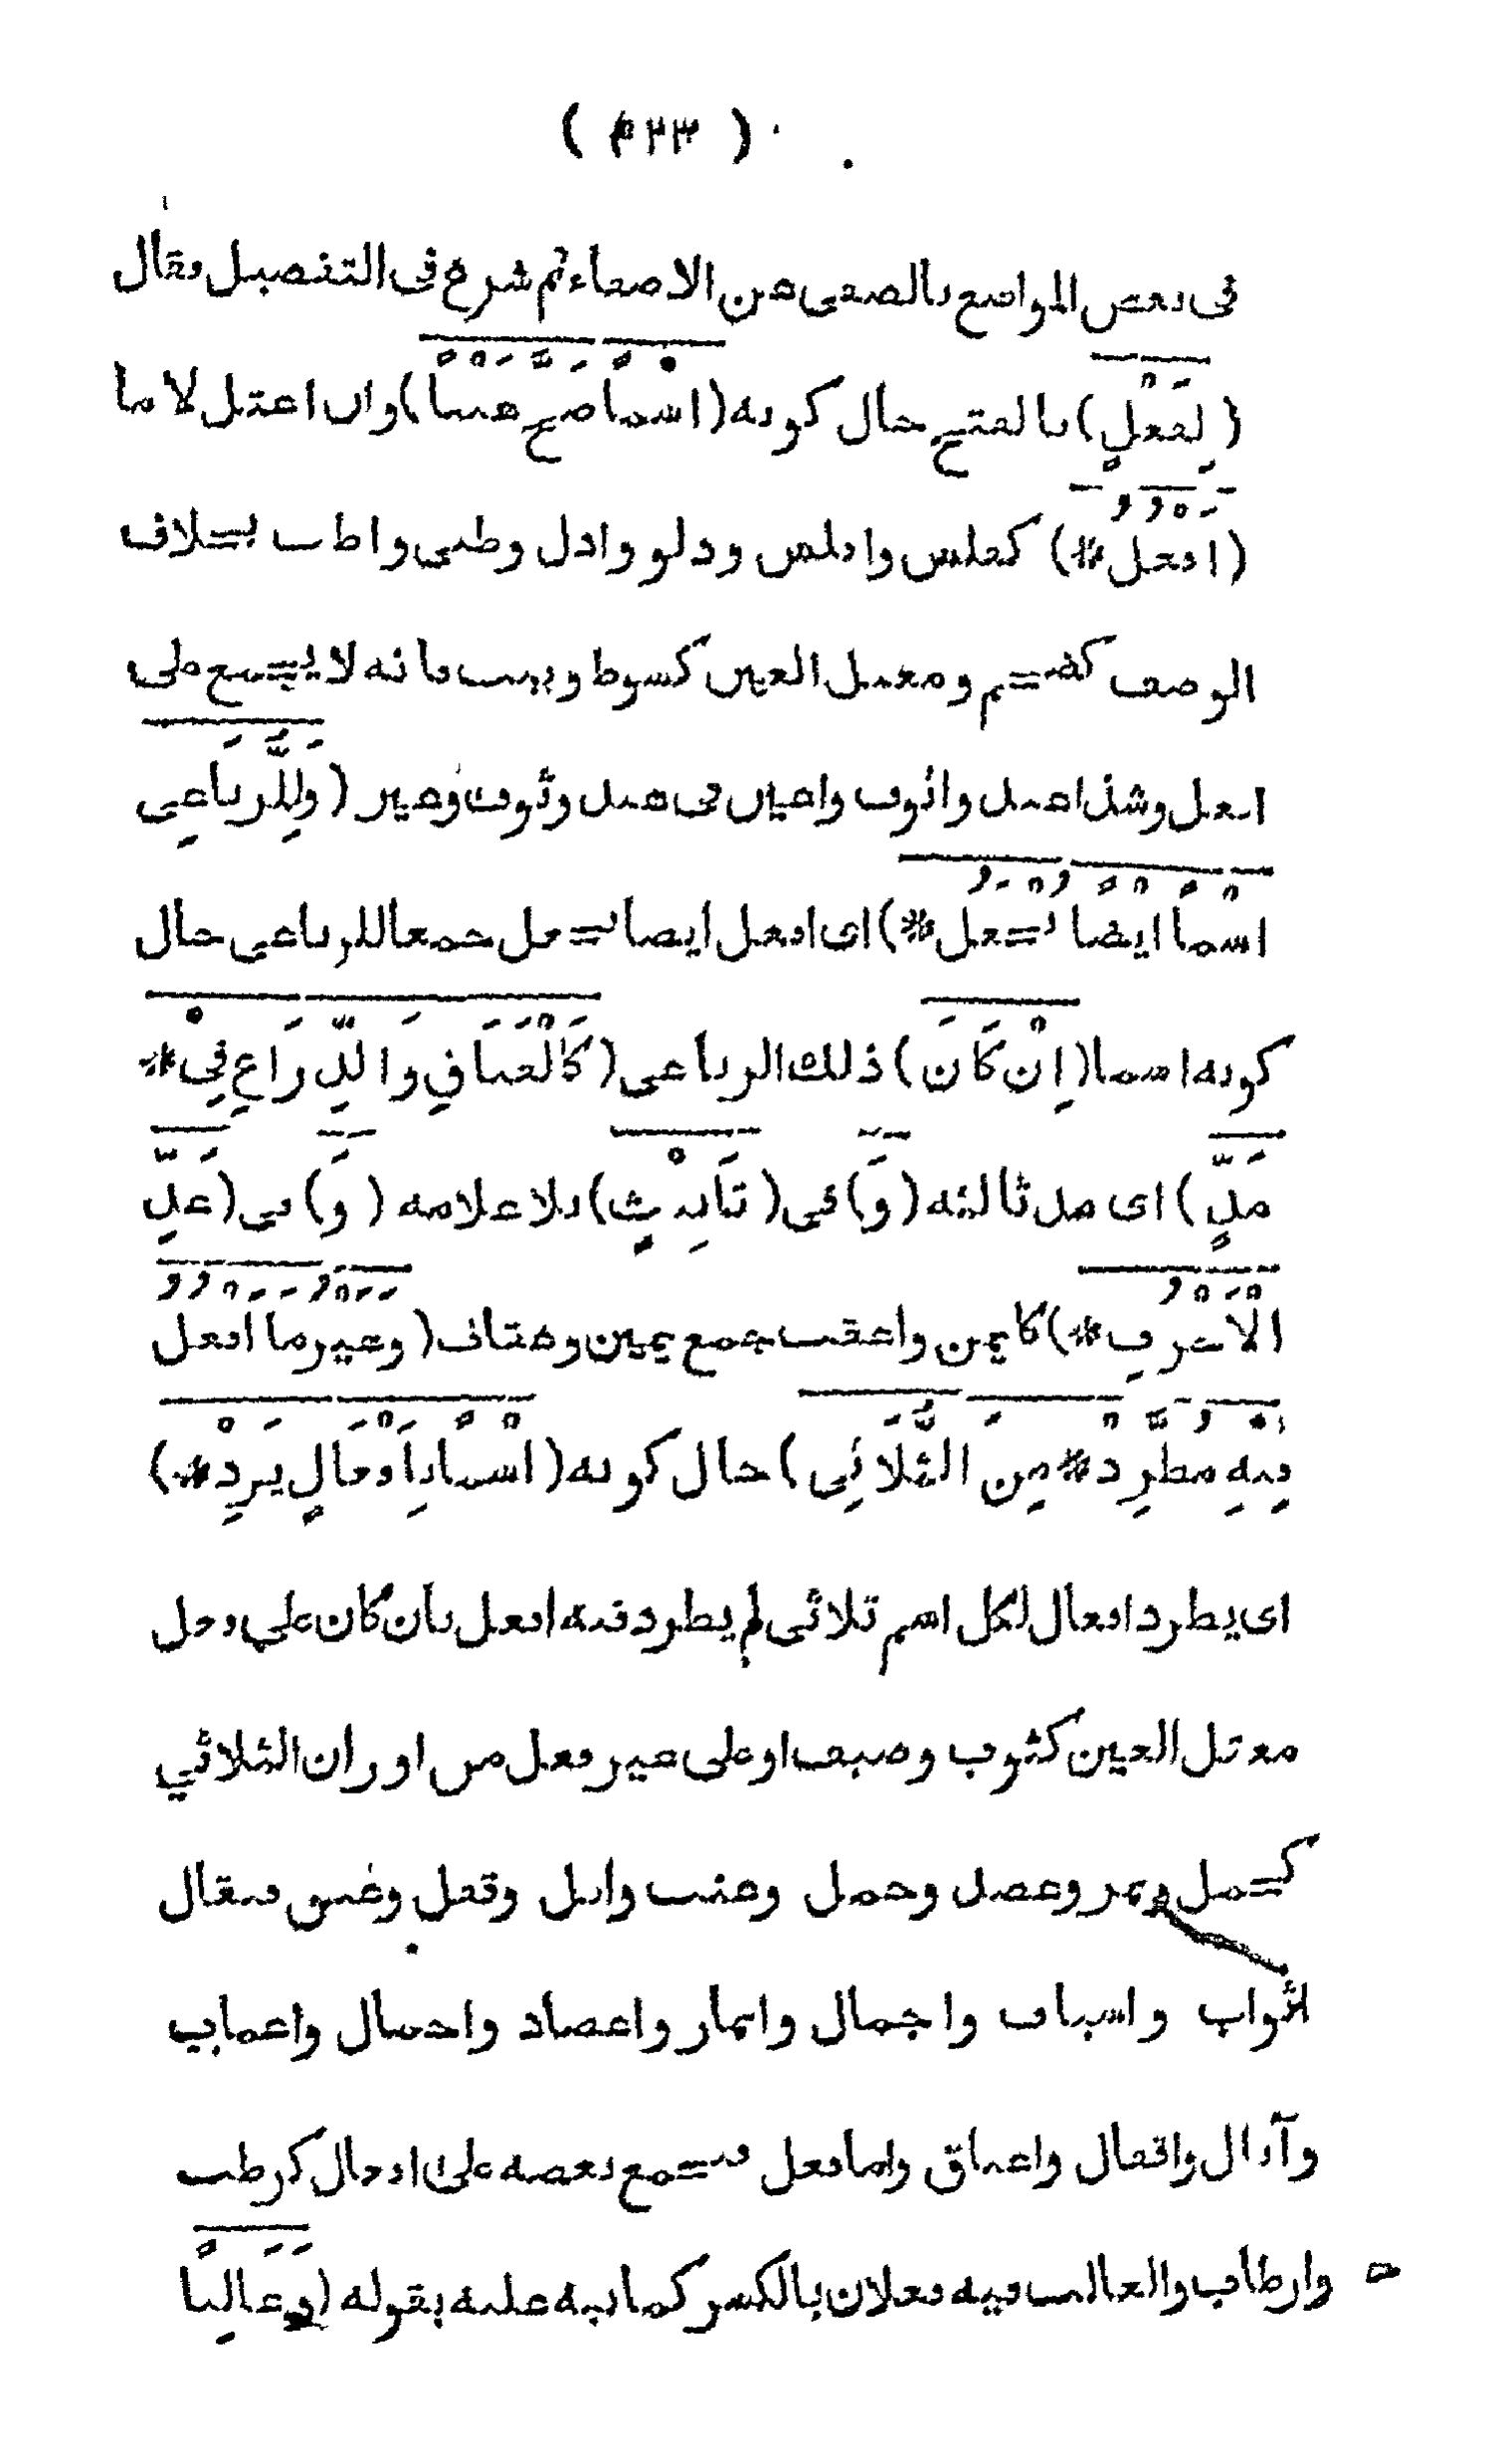 ( ٤٢٣ )
فى بعض المواضع بالصغى عن الاصغاء ثم شرع فى التفصيل فقال
( لِفَعْلٍ ) بالفتح حال كونه ( اسْمًا صَحَّ عَيْنًا ) وان اعتل لاما
( افْعُلُ * ) كفلس وافلس ودلو وادل وظبى واظب بخلاف
الوصف كضخم ومعتل العين كسوط وبيت فانه لا يجمع على
افعل وشذ اعبد واثوب واعين فى عبد وثوب وعين ( وَلِلرُّبَاعِي
اسْمًا ايْضًا يُجْعَلُ * ) اى افعل ايضا يجعل جمعا للرباعى حال
كونه اسما ( اِنْ كَانَ ) ذلك الرباعى ( كَالْعَنَاقِ وَالذِّرَاعِ فِيْ *
مَدٍّ ) اى مد ثالثه ( وَ ) فى ( تَانِيْثٍ ) بلا علامه ( وَ ) فى ( عَدِّ
الْاَحْرُفِ * ) كايمن واعقب جمع يمين وعقاب ( وغَيرُ ما افْعُلُ
فِيْهِ مُطَّرِدْ * مِنَ الثُّلَاثِى ) حال كونه ( اسْمًا بِاَفْعَالٍ يَرِدْ * )
اى يطرد افعال لكل اسم ثلاثى لم يطرد فيه افعل بان كان على فعل
معتل العين كثوب وسيف او على غير فعل من اوزان الثلاثي
كجمل ونمر وعضد وحمل وعنب وابل وقفل وعنق فيقال
اثواب واسياف واجمال وانمار واعضاد واحمال واعناب
وآبال واقفال واعناق واما فعل فيجمع بعضه على افعال كرطب
وارطاب والغالب فيه فعلان بالكسر كما نبه عليه بقوله ( وغَالِبًا